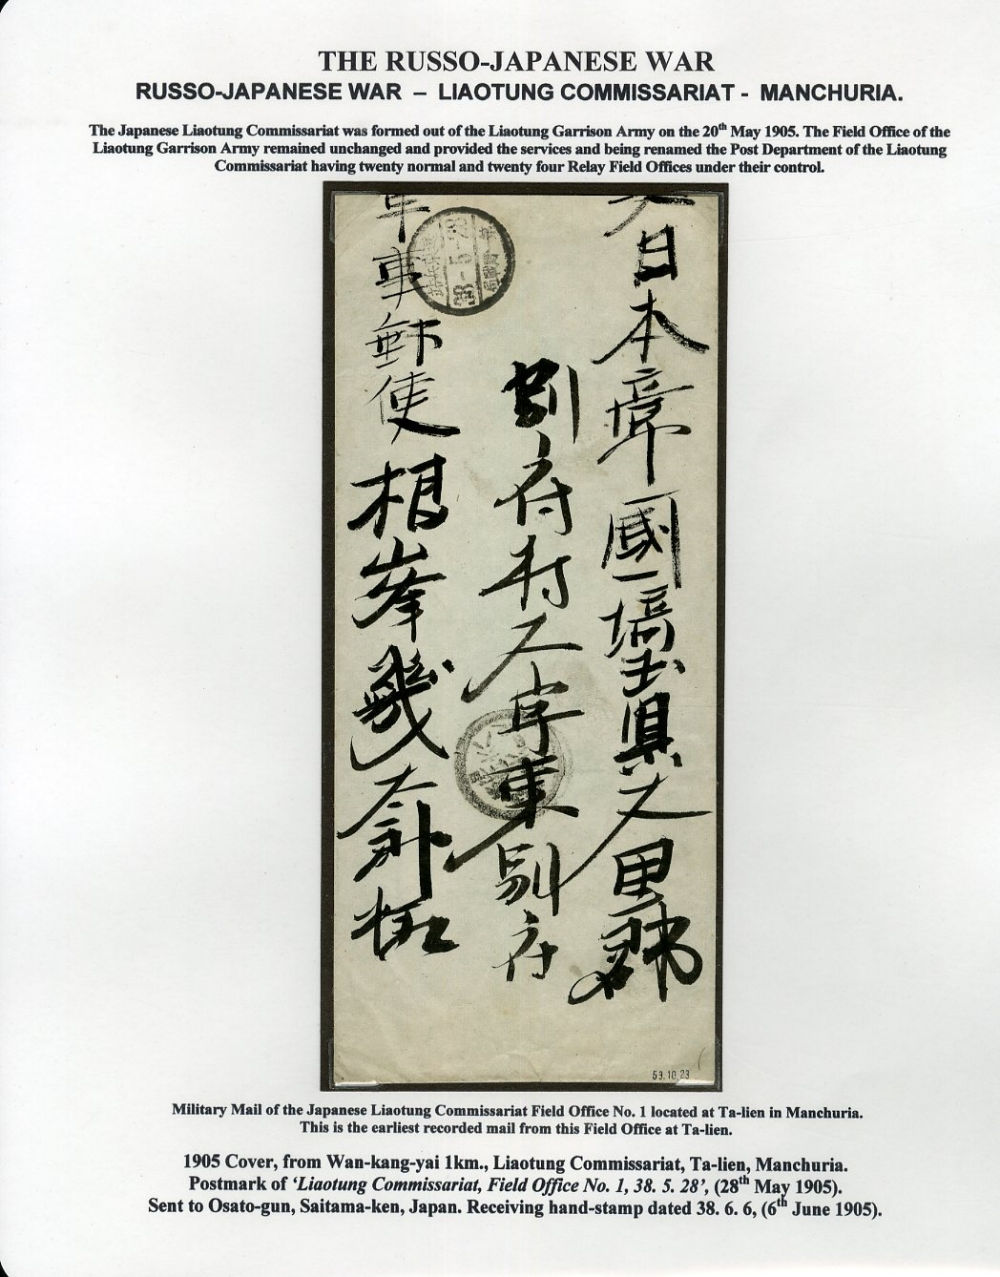 THE RUSSO-JAPANESE WAR
RUSSO-JAPANESE WAR – LIAOTUNG COMMISSARIAT - MANCHURIA.
The Japanese Liaotung Commissariat was formed out of the Liaotung Garrison Army on the 20th May 1905. The Field Office of the
Liaotung Garrison Army remained unchanged and provided the services and being renamed the Post Department of the Liaotung
Commissariat having twenty normal and twenty four Relay Field Offices under their control.
大日本帝國埼玉縣大里郡
別府村大字東別府
軍事郵便
53.10.23
Military Mail of the Japanese Liaotung Commissariat Field Office No. 1 located at Ta-lien in Manchuria.
This is the earliest recorded mail from this Field Office at Ta-lien.
1905 Cover, from Wan-kang-yai 1km., Liaotung Commissariat, Ta-lien, Manchuria.
Postmark of ‘Liaotung Commissariat, Field Office No. 1, 38. 5. 28’, (28th May 1905).
Sent to Osato-gun, Saitama-ken, Japan. Receiving hand-stamp dated 38. 6. 6, (6th June 1905).